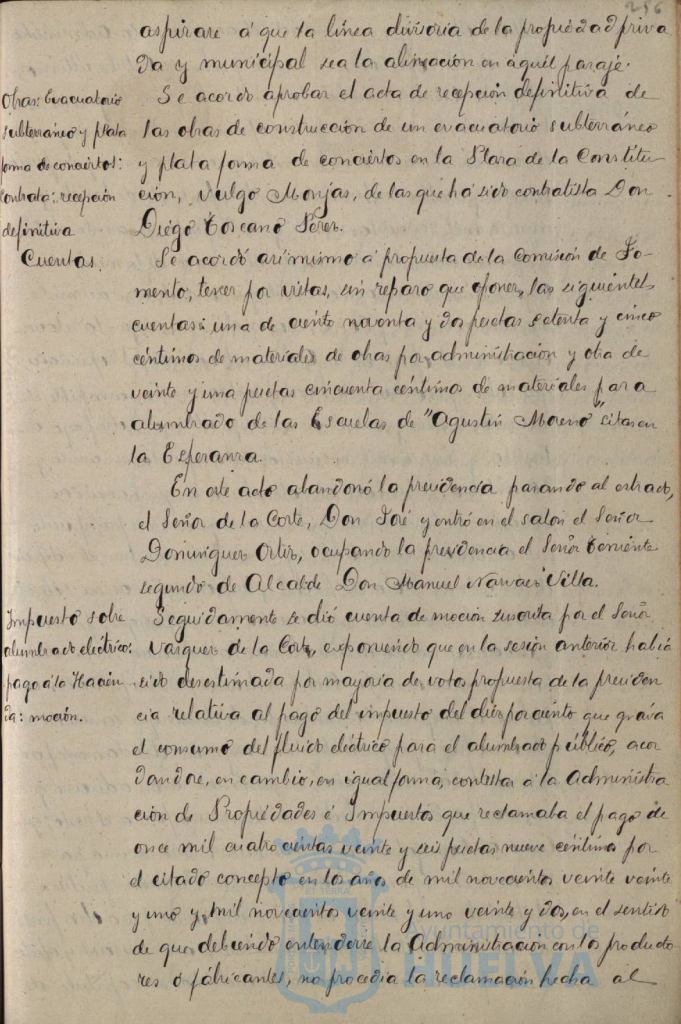 256
aspirare á que la línea divisoria de la propiedad priva
da y municipal sea la alineación en aquél paraje.
Obras: Evacuatorio
subterráneo y plata
forma de conciertos:
Contrata: recepción
definitiva
Se acordó aprobar el acta de recepción definitiva de
las obras de construcción de un evacuatorio subterráneo
y plataforma de conciertos en la Plaza de la Constitu
ción, vulgo Monjas, de las que há sido contratista Don
Diego Toscano Pérez.
Cuentas.
Se acordó asímismo á propuesta de la Comisión de Fo-
mento, tener por vistas, sin reparo que oponer, las siguientes
cuentas: una de ciento noventa y dos pesetas setenta y cinco
céntimos de materiales de obras por administración y otra de
veinte y una pesetas cincuenta céntimos de materiales para
alumbrado de las Escuelas de "Agustín Moreno" sitas en
la Esperanza.
En este acto abandonó la presidencia pasando al estrado,
el Señor de la Corte, Don José y entró en el salón el Señor
Domínguez Ortiz, ocupando la presidencia el Señor Teniente
segundo de Alcalde Don Manuel Narvaez Villa.
Impuesto sobre
alumbrado eléctrico:
pago á la Hacien
da: moción.
Seguidamente se dió cuenta de moción suscrita por el Señor
Vázquez de la Corte, exponiendo que en la sesión anterior había
sido desestimada por mayoría de votos propuesta de la presiden
cia relativa al pago del impuesto del diez por ciento que grava
el consumo del fluido eléctrico para el alumbrado público, acor
dandose, en cambio, en igual forma, contestar á la Administra
ción de Propiedades é Impuestos que reclamaba el pago de
once mil cuatrocientas veinte y seis pesetas nueve céntimos por
el citado concepto en los años de mil novecientos veinte veinte
y uno y mil novecientos veinte y uno veinte y dos, en el sentido
de que debiendo entenderse la Administración con los producto
res ó fabricantes, no procedía la reclamación hecha al
Ayuntamiento de
HUELVA